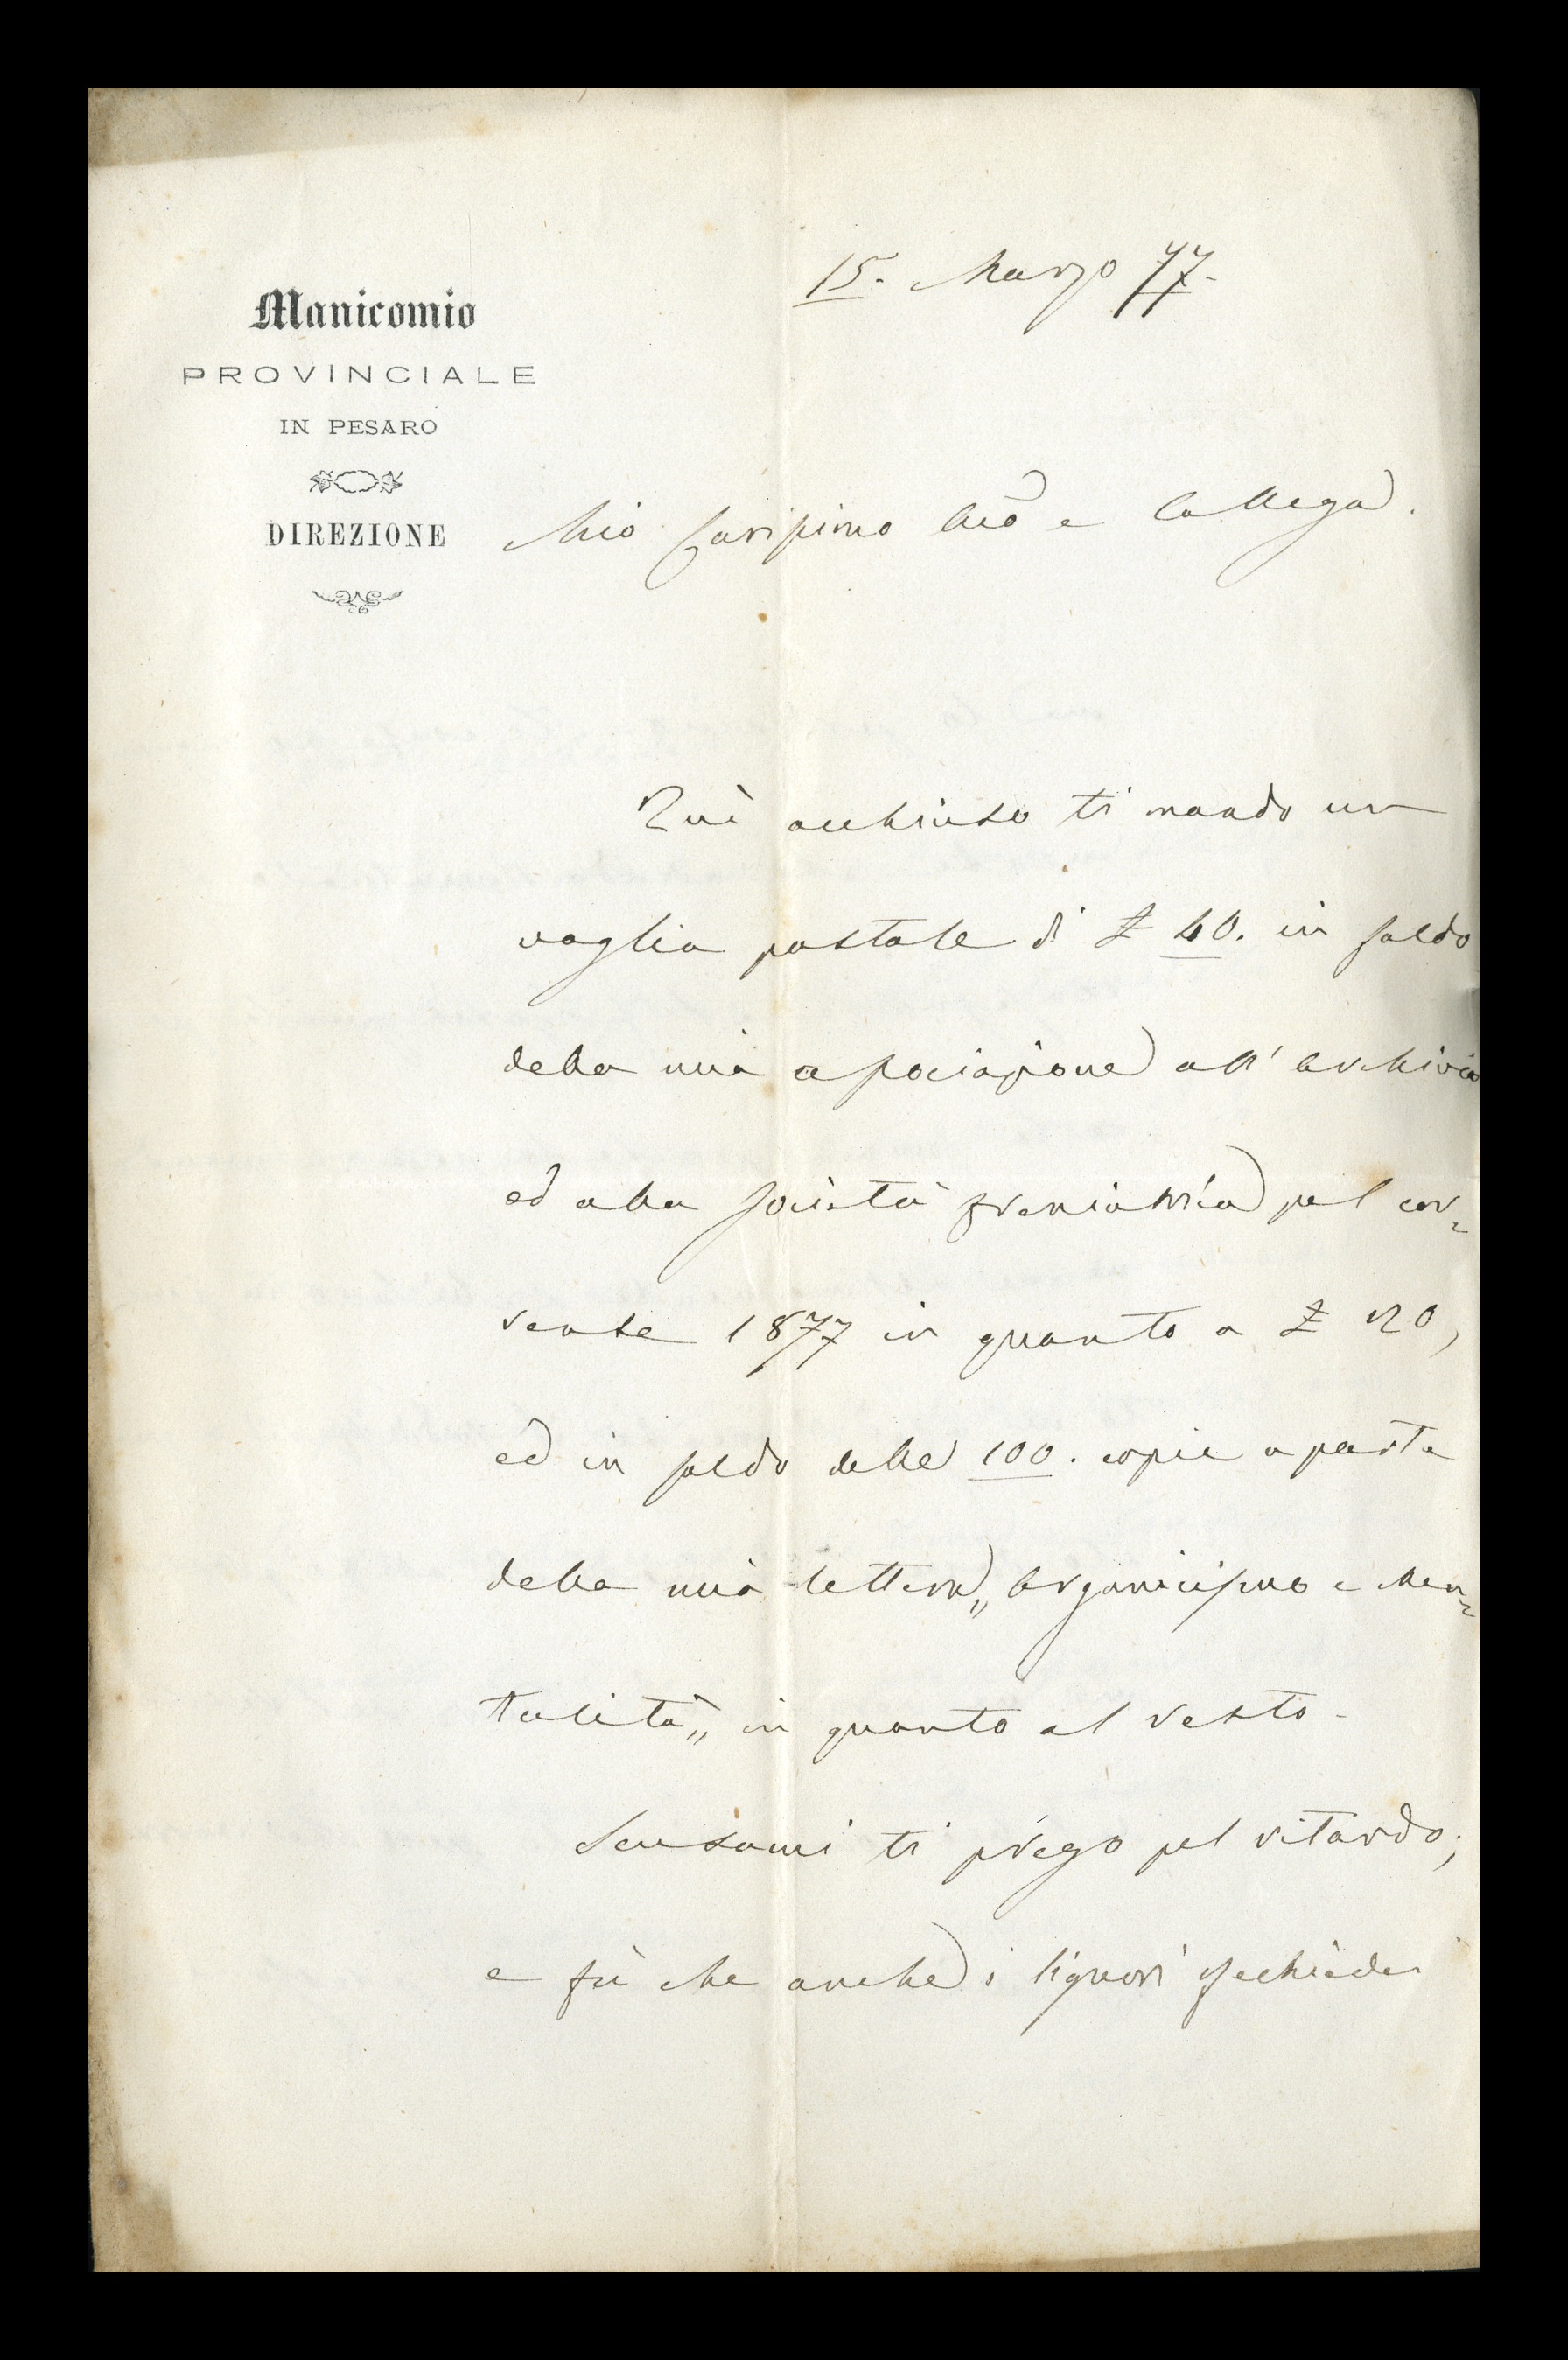 15. Marzo 77.
Manicomio
PROVINCIALE
IN PESARO
DIREZIONE
Mio Carissimo e Collega.
Quì acchiuso ti mando un
vaglia postale di £ 40. in saldo
della mia associazione all'Archivio
ed alla Società freniatrica pel cor=
rente 1877 in quanto a £ 20,
ed in saldo delle 100. copie a parte
della mia lettera „ Organicismo e Men=
talità „ in quanto al resto.
Scusami ti prego pel ritardo;
e fà che anche i Signori